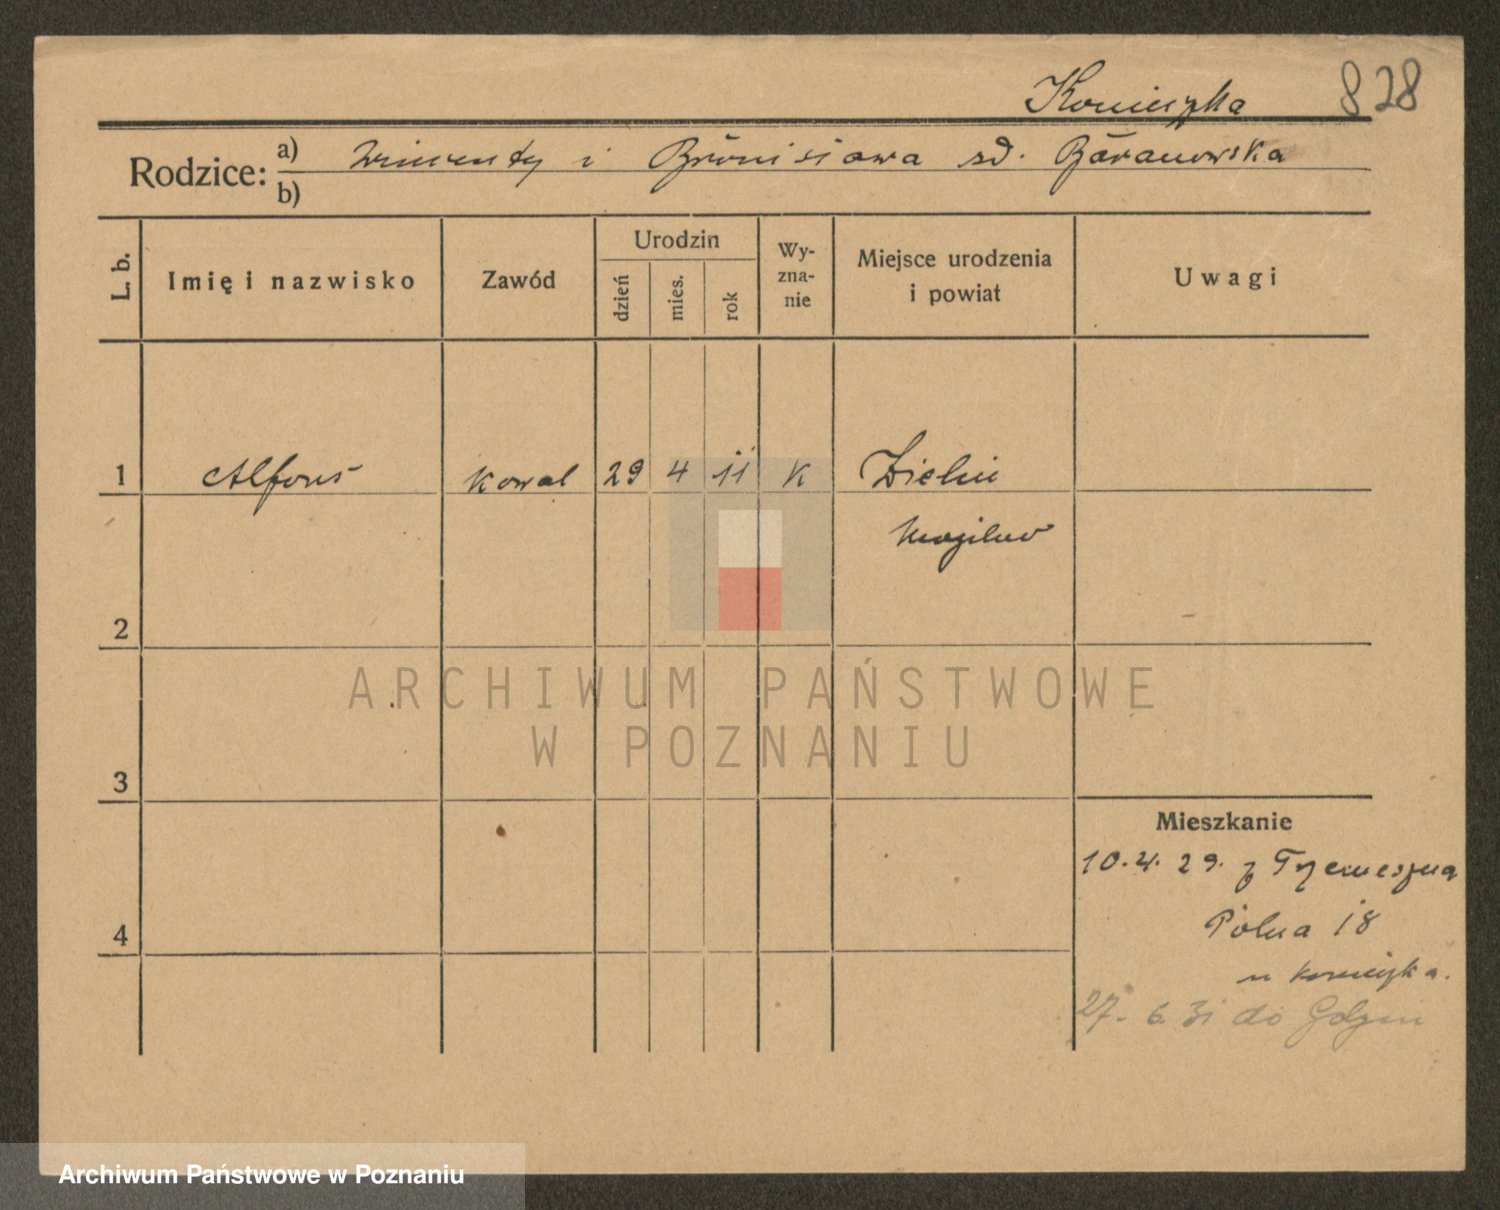 Konieczka 828
Rodzice: a) Wincenty i Bronisława zd. Baranowska
b)
L. b. Imię i nazwisko Zawód Urodzin dzień mies. rok Wy-zna-nie Miejsce urodzenia i powiat Uwagi
1 Alfons Kowal 29 4 11 K
Mogilno
2
ARCHIWUM PAŃSTWOWE
W POZNANIU
3
Mieszkanie
10.4.29. z Trzemeszna
4 Polna 18
u Konieczka.
27.6.31 do Gdyni
Archiwum Państwowe w Poznaniu